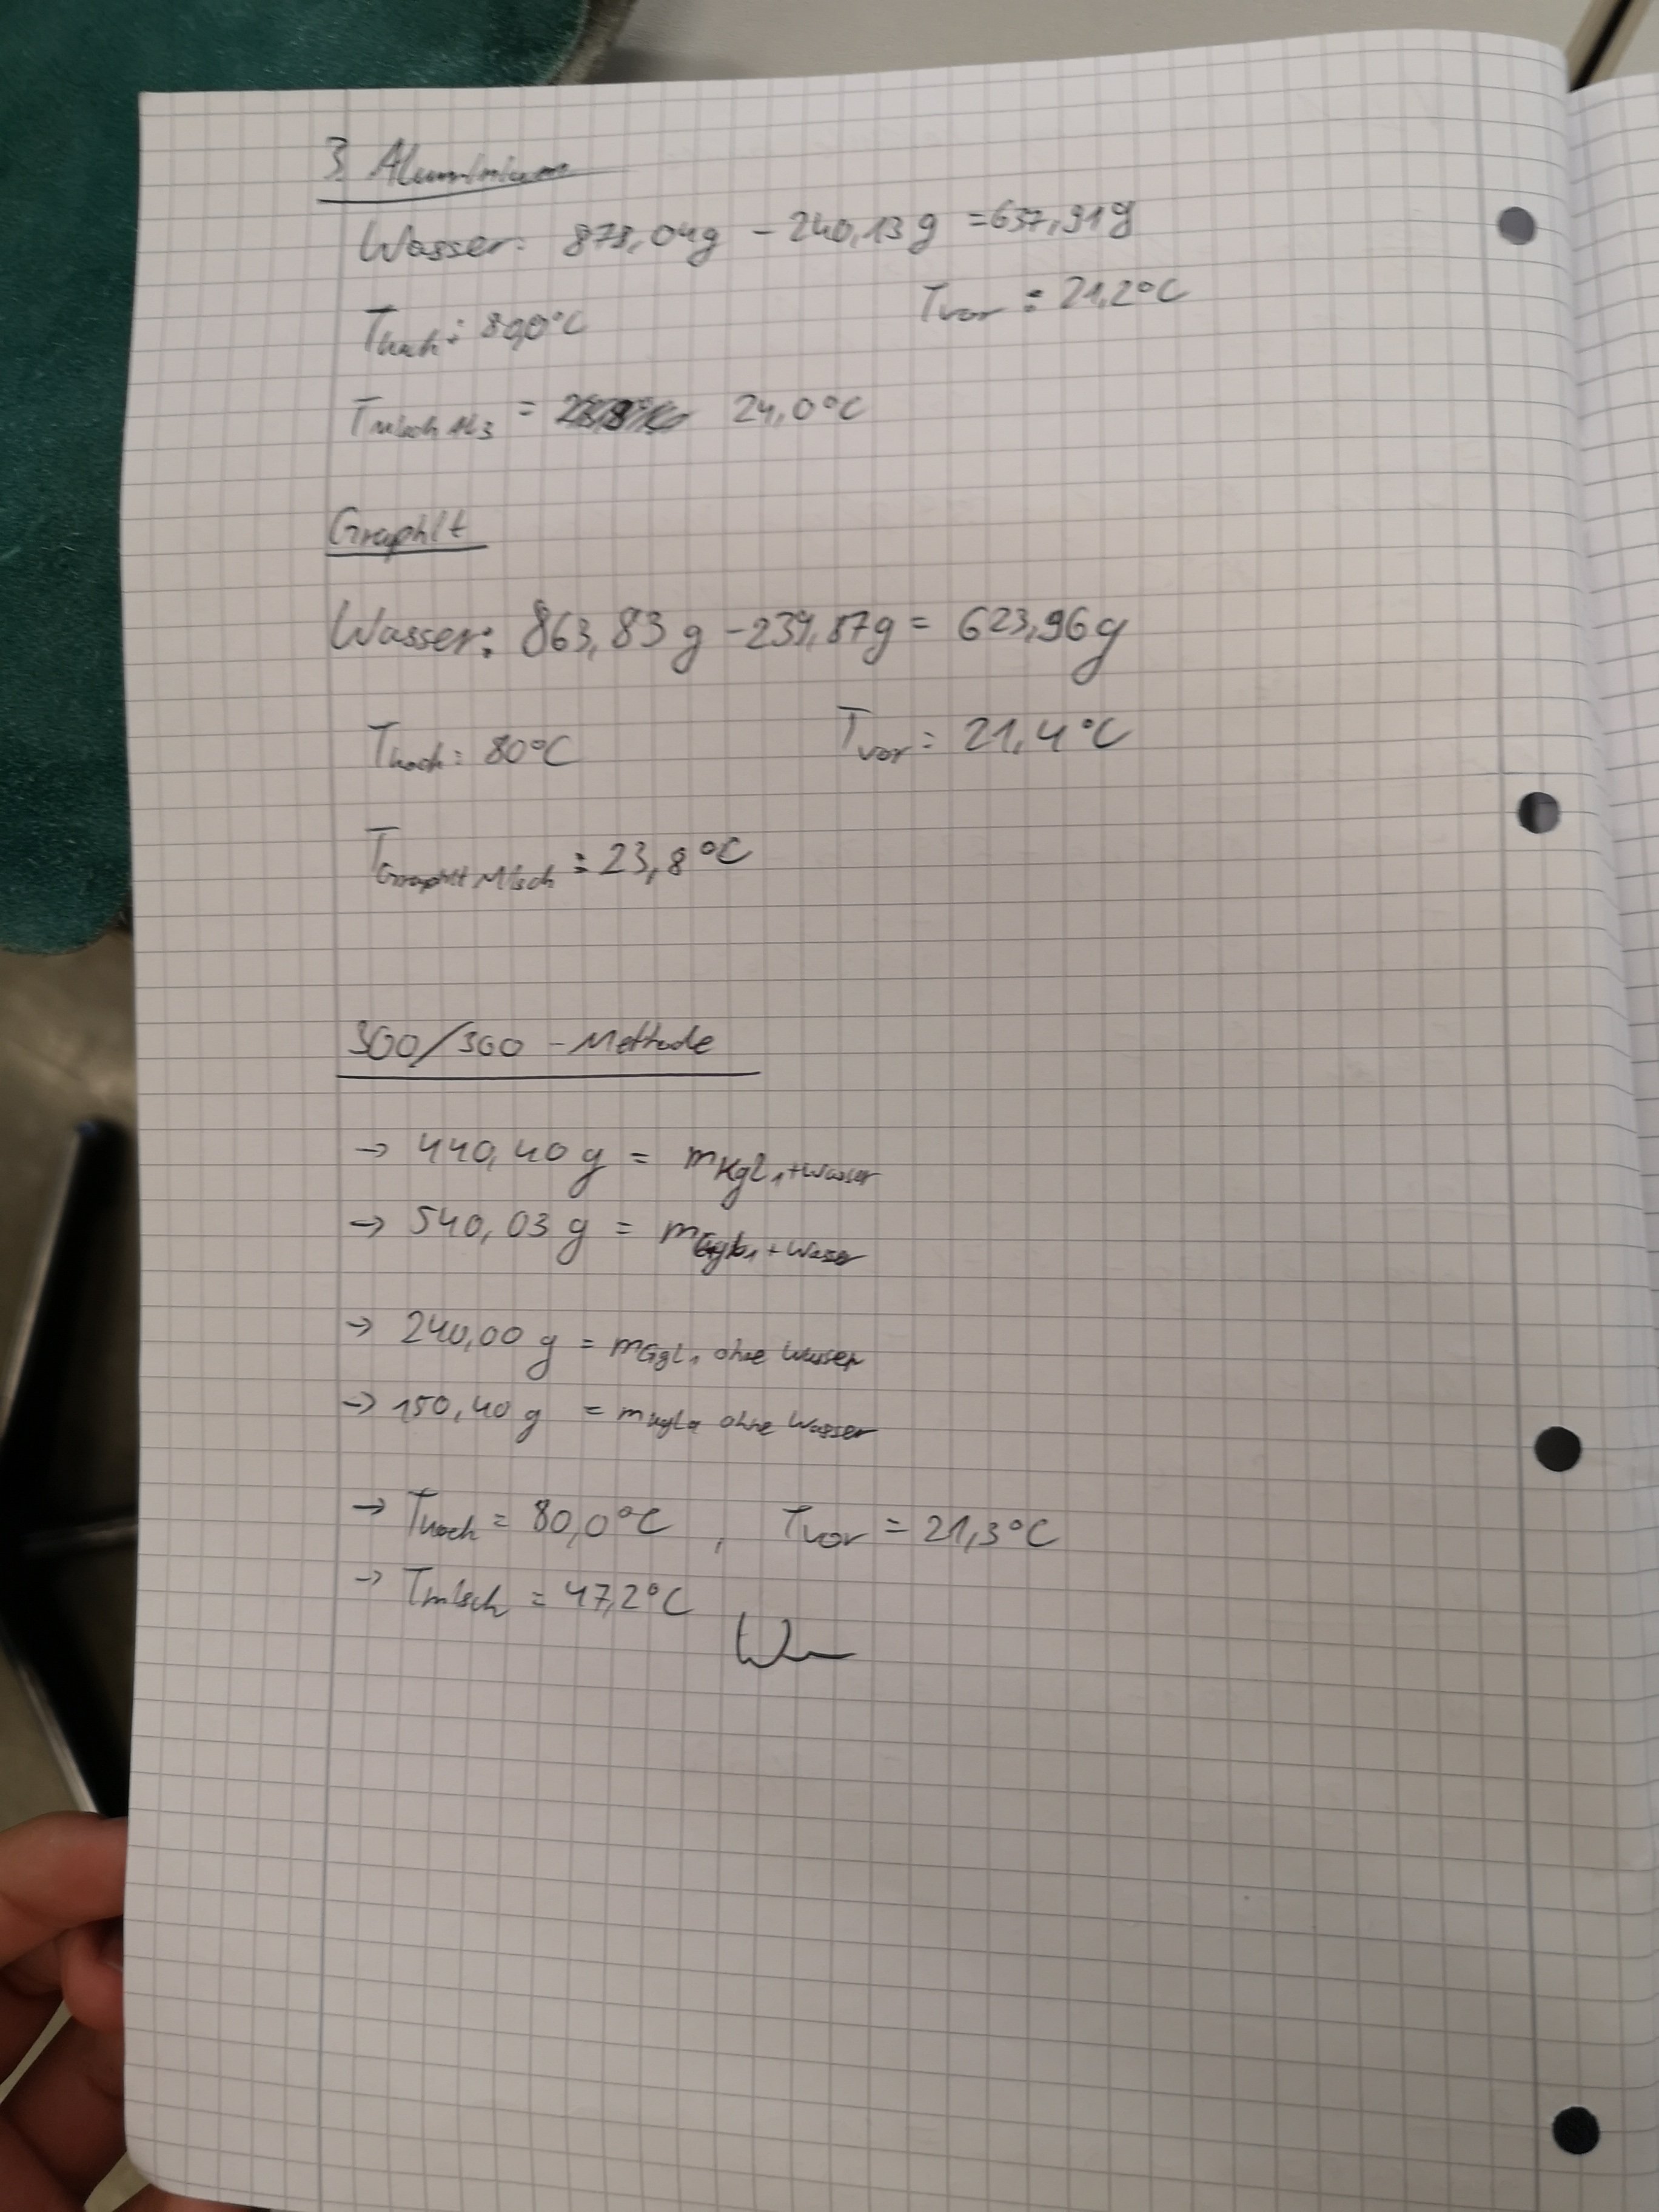 3. Aluminium
Wasser: 878,04g - 240,13g = 637,91g
T_hoch: 80,0°C T_vor = 21,2°C
T_misch Al 3 = 24,0°C
Graphit
Wasser: 863,83g - 239,87g = 623,96g
T_hoch: 80°C T_vor = 21,4°C
T_Graphit Misch = 23,8°C
300/300 - Methode
→ 440,40 g = m_Kgl1 + Wasser
→ 540,03 g = m_Ggl1 + Wasser
→ 240,00 g = m_Ggl1 ohne Wasser
→ 150,40 g = m ohne Wasser
→ T_hoch = 80,0°C , T_vor = 21,3°C
→ T_misch = 47,2°C